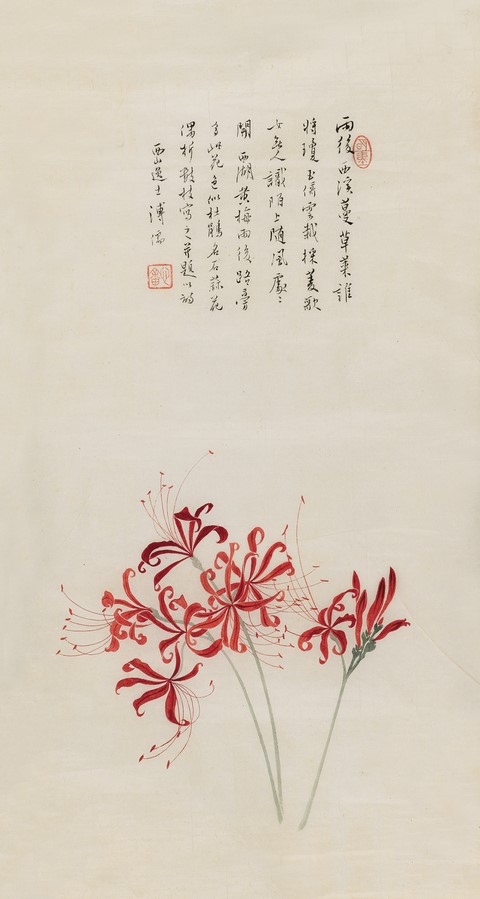 雨後西溪蔓草萊誰
將瓊玉倚雲栽採菱歌
女無人識陌上隨風處〻
開 西湖黃梅雨後路旁
有此花色似杜鵑名石蒜花
偶折數枝寫之并題以詩
西山逸士溥儒